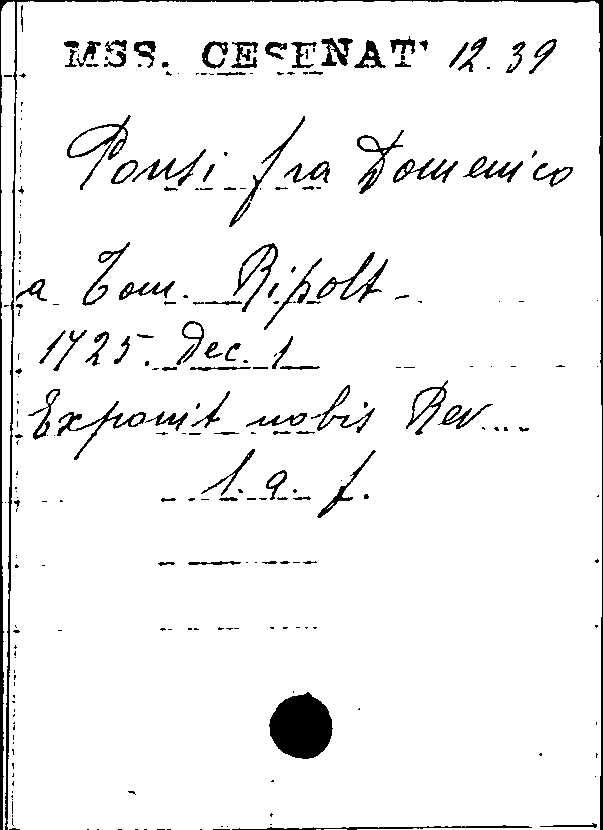 MSS. CESENAT' 12.39
Ponsi fra Domenico
a Tom. Ripolt
1725. Dec. 1
Exponit nobis Rev....
l. a. f.